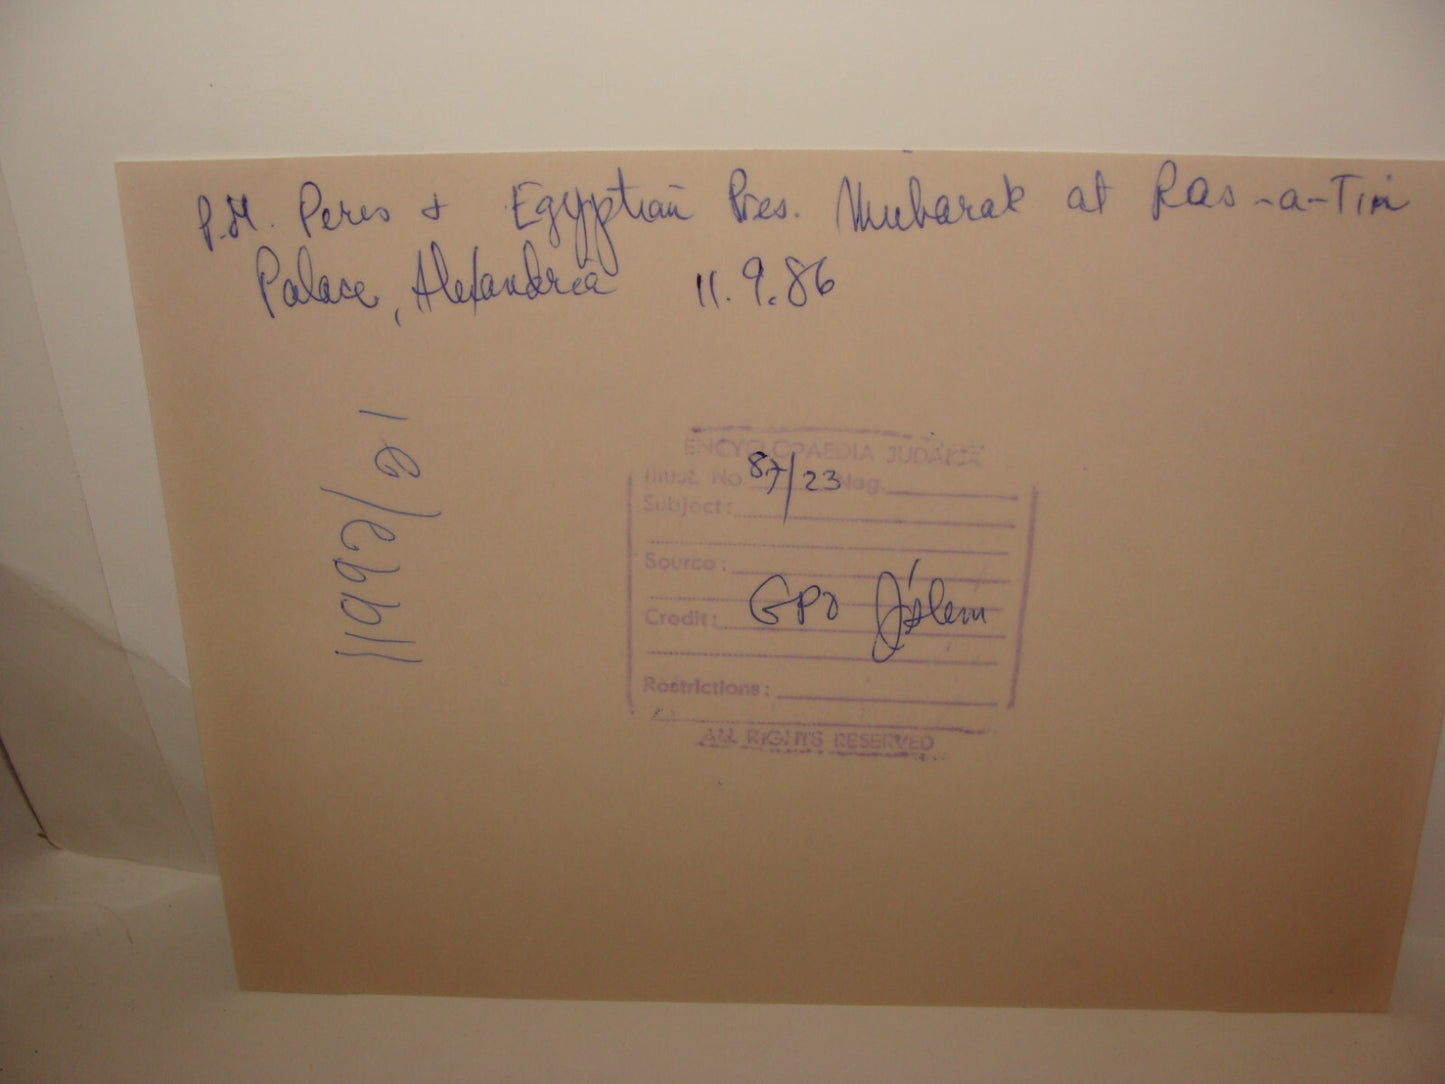 P.M. Peres + Egyptian Pres. Mubarak at Ras-a-Tin
Palace, Alexandria 11.9.86
ENCYCLOPAEDIA JUDAICA
Illust. No. 87/23 Neg.
Subject:
Source:
Credit: GPO J'slem
Restrictions:
ALL RIGHTS RESERVED